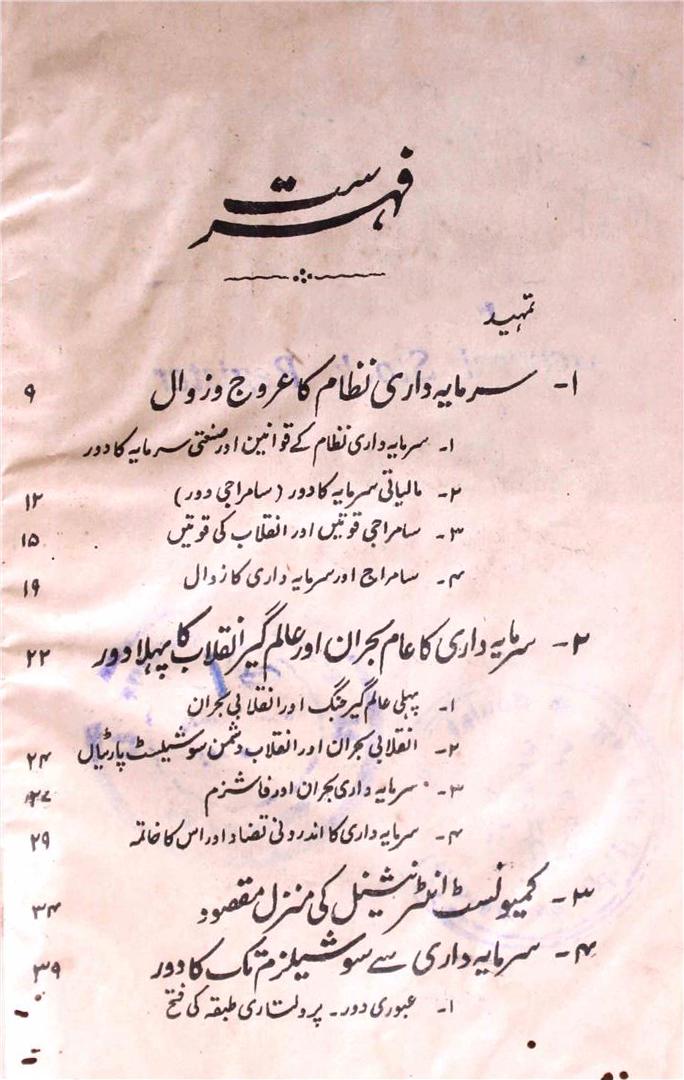 فہرست
تمہید
۱۔ سرمایہ داری نظام کا عروج و زوال ۹
۱۔ سرمایہ داری نظام کے قوانین اور صنعتی سرمایہ کا دور
۲۔ مالیاتی سرمایہ کا دور (سامراجی دور) ۱۲
۳۔ سامراجی قوتیں اور انقلاب کی قوتیں ۱۵
۴۔ سامراج اور سرمایہ داری کا زوال ۱۹
۲۔ سرمایہ داری کا عام بحران اور عالم گیر انقلاب کا پہلا دور ۲۲
۱۔ پہلی عالم گیر جنگ اور انقلابی بحران
۲۔ انقلابی بحران اور انقلاب دشمن سوشیلسٹ پارٹیاں ۲۴
۳۔ سرمایہ داری بحران اور فاشزم ۲۷
۴۔ سرمایہ داری کا اندرونی تضاد اور اس کا خاتمہ ۲۹
۳۔ کمیونسٹ انٹرنیشنل کی منزل مقصود ۳۴
۴۔ سرمایہ داری سے سوشیلزم تک کا دور ۳۹
۱۔ عبوری دور۔ پرولتاری طبقہ کی فتح